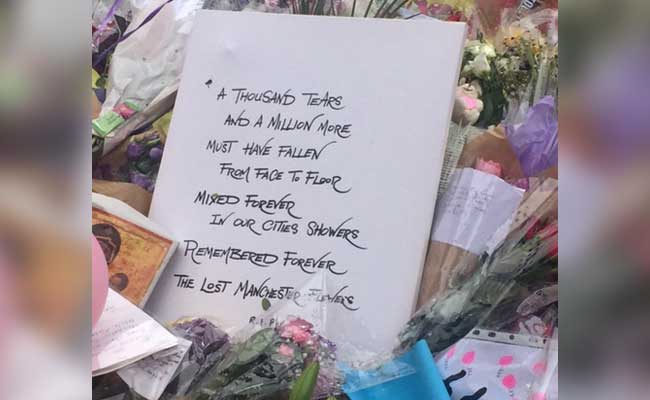 A THOUSAND TEARS
AND A MILLION MORE
MUST HAVE FALLEN
FROM FACE TO FLOOR
MIXED FOREVER
IN OUR CITIES SHOWERS
REMEMBERED FOREVER
THE LOST MANCHESTER FLOWERS
R.I.P